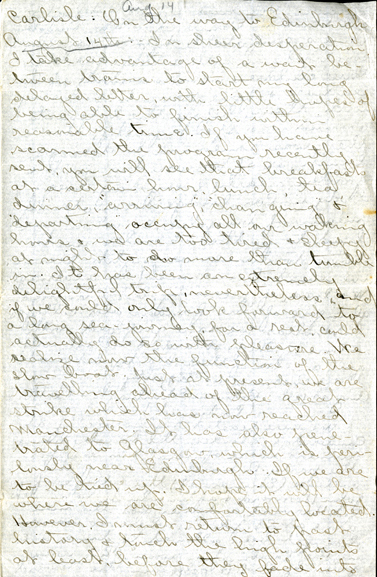 Aug 14
Carlisle: On the way to Edinburgh
August 14th. In sheer desperation
I take advantage of a wait be-
tween trains to start my long
delayed letter, with little hopes of
being able to finish within
reasonable time. If you have
scanned the program recently
sent, you will see that breakfast
at a certain hour, lunch, tea
dinner, arriving, changing &
departing occupy all our waking
hours & we are too tired & sleepy
at night to do more than tumble
in. It has been an extremely
delightful trip, nevertheless, and
if we could only look forward to
a long sea-journey for a rest, could
actually do so with pleasure. We
realize now the function of the
slow boat. Just at present, we are
travelling ahead of the great
strike which has now reached
Manchester. It has also pene-
trated to Glasgow which is peri-
lously near Edinburgh. If we are
to be tied up, I hope it will be
where we are comfortably located.
However, I must return to past
history & touch the high points
at least, before they fade into